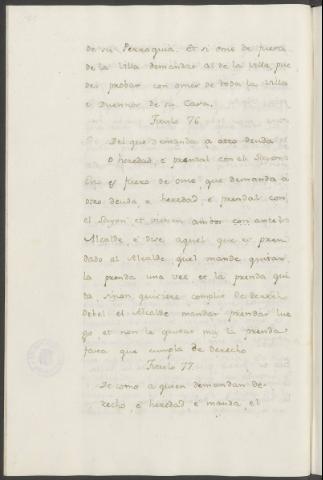 de su Perroquia. Et si ome de fuera
de la Villa demandar al de la Villa pue
del probar con omes de toda la Villa
e Duennos de su Casa.
Titulo 76
Del que demanda a otro deuda
o heredad, e prendal con el Sayon.
Esto es fuero de ome, que demanda a
otro deuda e heredad e prendal con
el Sayon, et vienen ambos con ante el
Alcalde, e dise aquel que es pren
dado al Alcalde quel mande quitar
la prenda una vez et la prenda qui
ta, si non quisiere complir de derecho
debel el Alcalde mandar prendar lue
go et non le quitar mas la prenda
fata que cumpla de derecho
Titulo 77
De como a quien demandan de
recho, e heredad e manda, el